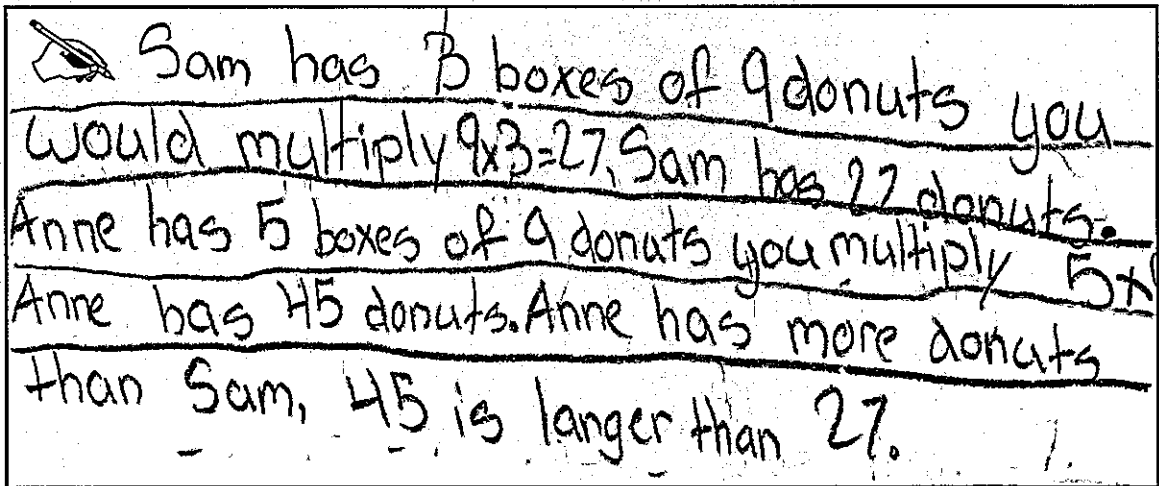 Sam has 3 boxes of 9 donuts you
would multiply 9x3=27, Sam has 27 donuts.
Anne has 5 boxes of 9 donuts you multiply 5x
Anne has 45 donuts. Anne has more donuts
than Sam, 45 is larger than 27.